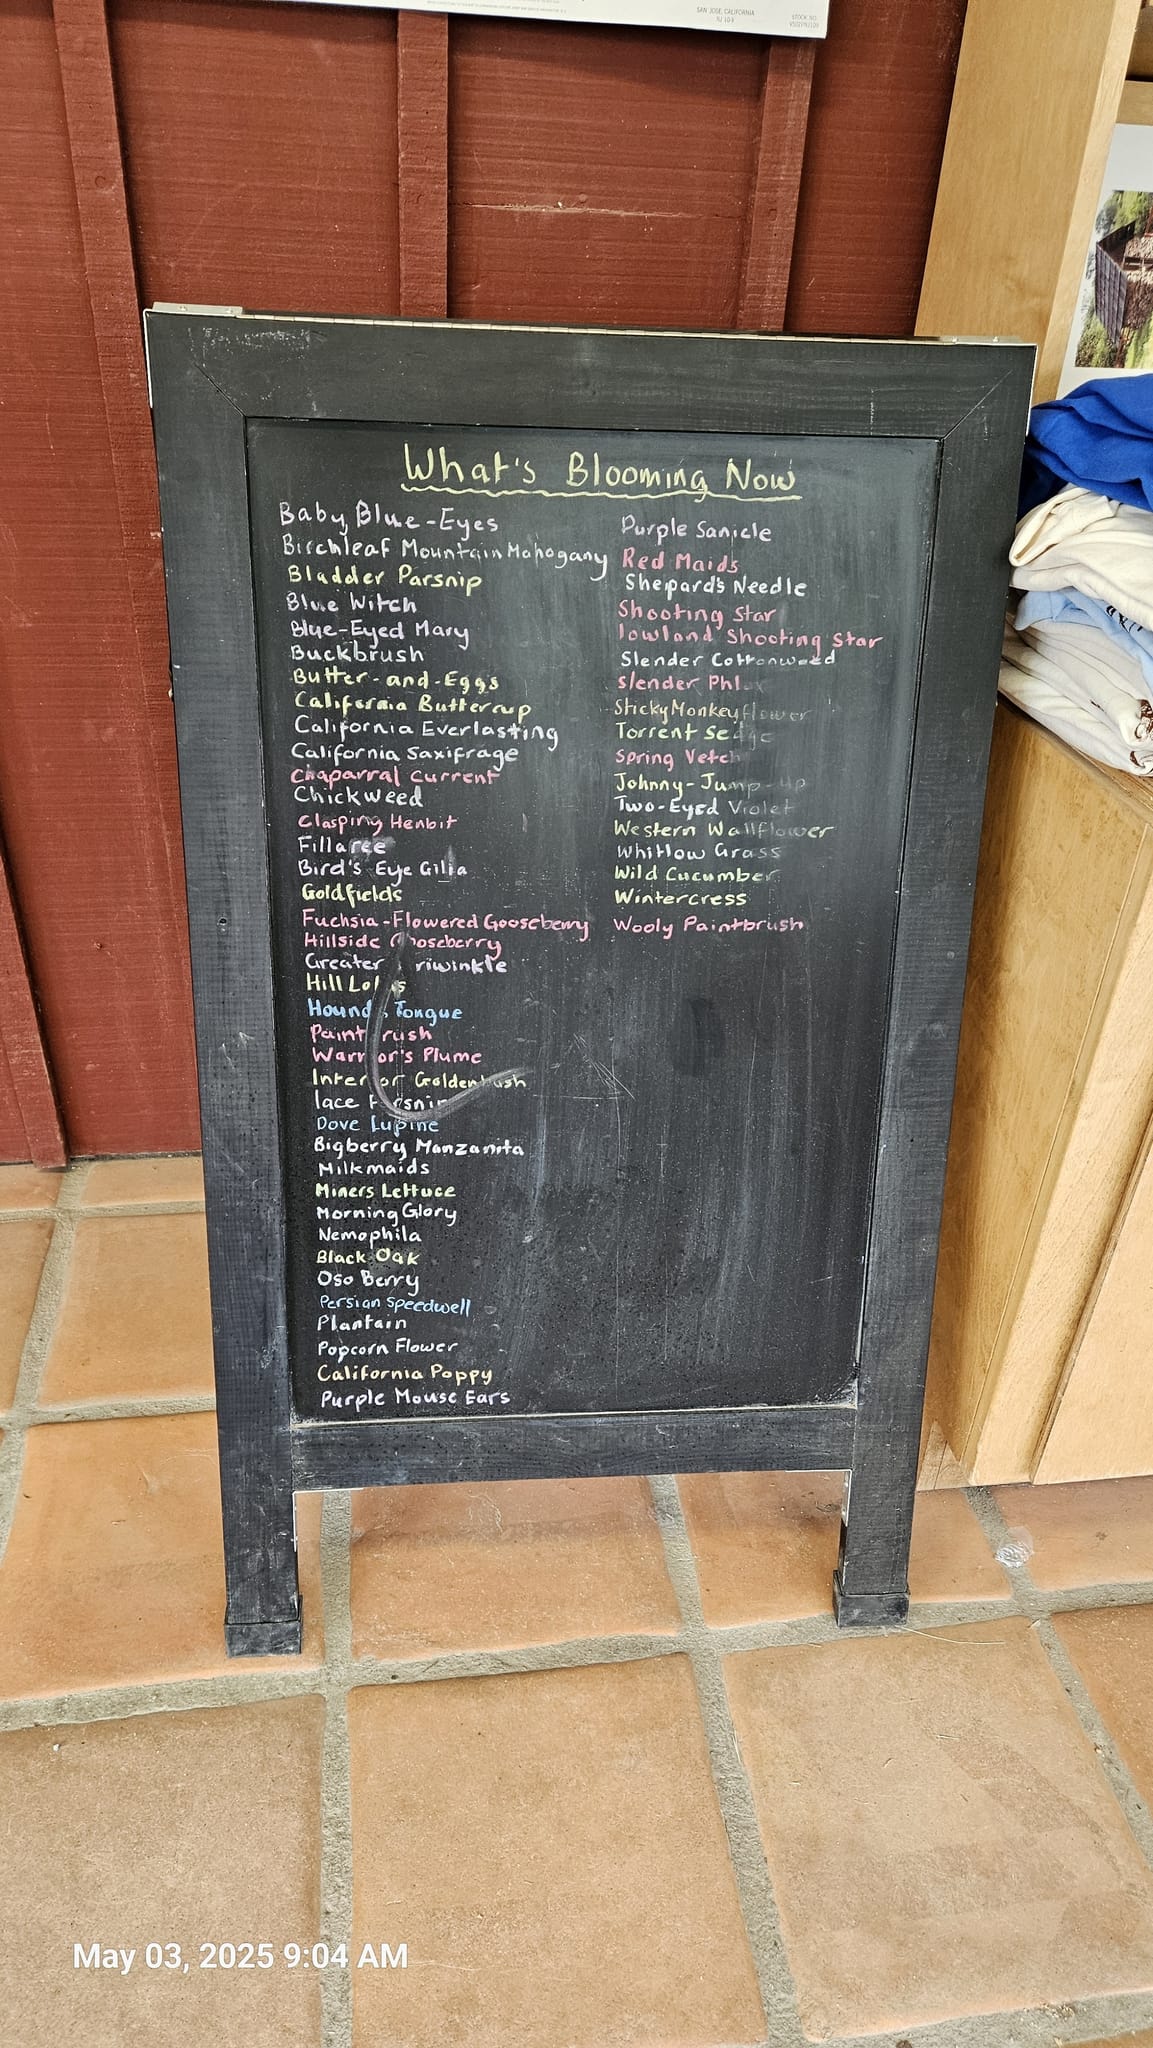 SAN JOSE, CALIFORNIA
STOCK NO.
What's Blooming Now
Baby Blue-Eyes
Birchleaf Mountain Mahogany
Bladder Parsnip
Blue Witch
Blue-Eyed Mary
Buckbrush
Butter-and-Eggs
California Buttercup
California Everlasting
California Saxifrage
Chaparral Current
Chickweed
Clasping Henbit
Fillaree
Bird's Eye Gilia
Goldfields
Fuchsia-Flowered Gooseberry
Hillside Gooseberry
Greater riwinkle
Hill Lotus
Hound's Tongue
Paintbrush
Warrior's Plume
Interior Goldenbush
lace Parsnip
Dove Lupine
Bigberry Manzanita
Milkmaids
Miners Lettuce
Morning Glory
Nemophila
Black Oak
Oso Berry
Persian Speedwell
Plantain
Popcorn Flower
California Poppy
Purple Mouse Ears
Purple Sanicle
Red Maids
Shepard's Needle
Shooting Star
lowland Shooting Star
Slender Cottonweed
Slender Phlox
Sticky Monkeyflower
Torrent Sedge
Spring Vetch
Johnny-Jump-up
Two-Eyed Violet
Western Wallflower
Whitlow Grass
Wild Cucumber
Wintercress
Wooly Paintbrush
May 03, 2025 9:04 AM